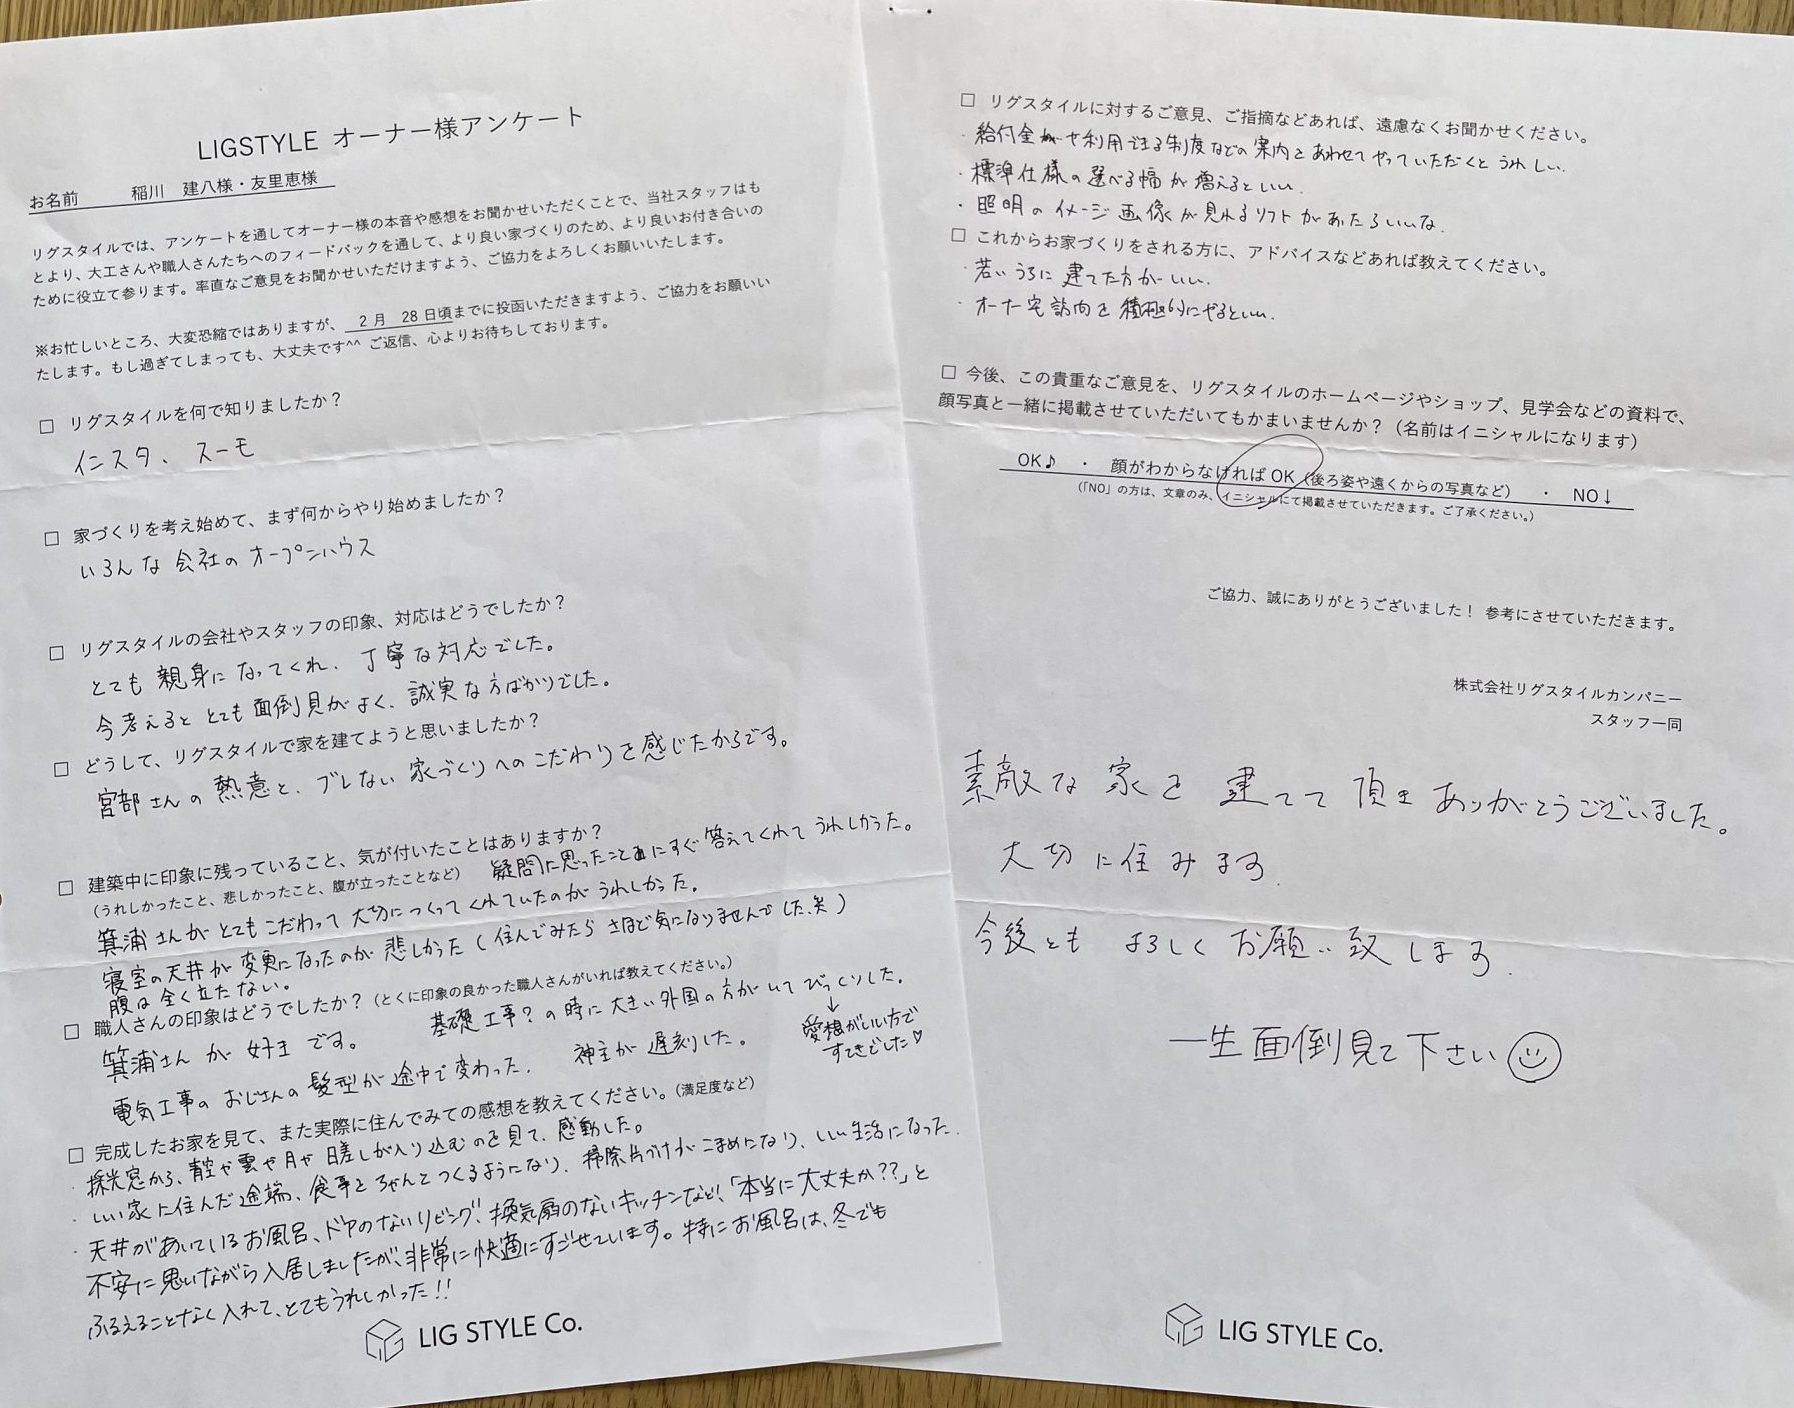 LIGSTYLE オーナー様アンケート
お名前 稲川 建八様・友里恵様
リグスタイルでは、アンケートを通してオーナー様の本音や感想をお聞かせいただくことで、当社スタッフはも
とより、大工さんや職人さんたちへのフィードバックを通して、より良い家づくりのため、より良いお付き合いの
ために役立て参ります。率直なご意見をお聞かせいただけますよう、ご協力をよろしくお願いいたします。
※お忙しいところ、大変恐縮ではありますが、 2月 28日頃までに投函いただきますよう、ご協力をお願いい
たします。もし過ぎてしまっても、大丈夫です^^ ご返信、心よりお待ちしております。
□ リグスタイルを何で知りましたか？
インスタ、スーモ
□ 家づくりを考え始めて、まず何からやり始めましたか？
いろんな会社のオープンハウス
□ リグスタイルの会社やスタッフの印象、対応はどうでしたか？
とても親身になってくれ、丁寧な対応でした。
今考えるととても面倒見がよく、誠実な方ばかりでした。
□ どうして、リグスタイルで家を建てようと思いましたか？
宮部さんの熱意と、ブレない家づくりへのこだわりを感じたからです。
□ 建築中に印象に残っていること、気が付いたことはありますか？
（うれしかったこと、悲しかったこと、腹が立ったことなど） 疑問に思ったことにすぐ答えてくれてうれしかった。
箕浦さんがとてもこだわって大切につくってくれていたのがうれしかった。
寝室の天井が変更になったのが悲しかった（住んでみたらさほど気になりませんでした笑）
腹は全く立たない。
□ 職人さんの印象はどうでしたか？（とくに印象の良かった職人さんがいれば教えてください。）
箕浦さんが好きです。 基礎工事？の時に大きい外国の方がいてびっくりした。
↓
愛想がいい方で
すてきでした♡
電気工事のおじさんの髪型が途中で変わった。 神主が遅刻した。
□ 完成したお家を見て、また実際に住んでみての感想を教えてください。（満足度など）
・採光窓から、青空や雲や月や日差しが入り込むのを見て、感動した。
・いい家に住んだ途端、食事をちゃんとつくるようになり、掃除片づけがこまめになり、いい生活になった。
・天井があいているお風呂、ドアのないリビング、換気扇のないキッチンなど、「本当に大丈夫か？？」と
不安に思いながら入居しましたが、非常に快適にすごせています。特にお風呂は、冬でも
ふるえることなく入れて、とてもうれしかった!!
LIG STYLE Co.
□ リグスタイルに対するご意見、ご指摘などあれば、遠慮なくお聞かせください。
・給付金や利用できる制度などの案内をあわせてやっていただくとうれしい。
・標準仕様の選べる幅が増えるといい。
・照明のイメージ画像が見れるソフトがあったらいいな。
□ これからお家づくりをされる方に、アドバイスなどあれば教えてください。
・若いうちに建てた方がいい。
・オーナー宅訪問を積極的にやるといい。
□ 今後、この貴重なご意見を、リグスタイルのホームページやショップ、見学会などの資料で、
顔写真と一緒に掲載させていただいてもかまいませんか？（名前はイニシャルになります）
OK♪ ・ 顔がわからなければ OK（後ろ姿や遠くからの写真など） ・ NO↓
（「NO」の方は、文章のみ、イニシャルにて掲載させていただきます。ご了承ください。）
ご協力、誠にありがとうございました！ 参考にさせていただきます。
株式会社リグスタイルカンパニー
スタッフ一同
素敵な家を建てて頂きありがとうございました。
大切に住みます。
今後ともよろしくお願い致します。
一生面倒見て下さい
LIG STYLE Co.